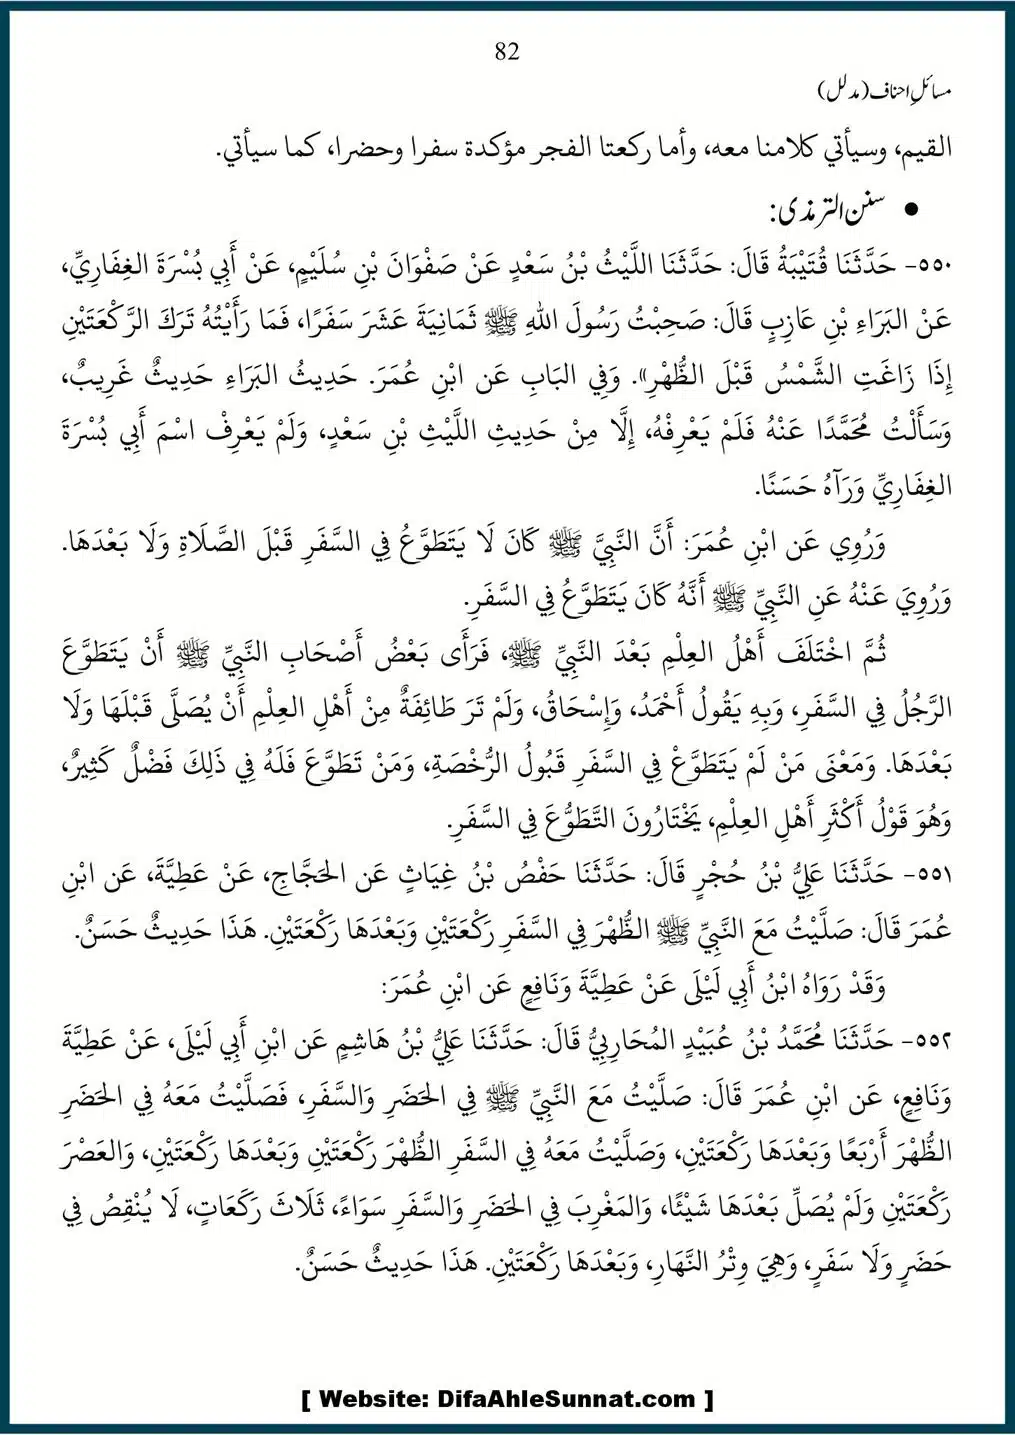 82
مسائلِ احناف (مدلل)
القيم، وسيأتي كلامنا معه، وأما ركعتا الفجر مؤكدة سفرا وحضرا، كما سيأتي.
• سنن الترمذی:
٥٥٠- حَدَّثَنَا قُتَيْبَةُ قَالَ: حَدَّثَنَا اللَّيْثُ بْنُ سَعْدٍ عَنْ صَفْوَانَ بْنِ سُلَيْمٍ، عَنْ أَبِي بُسْرَةَ الغِفَارِيِّ،
عَنْ البَرَاءِ بْنِ عَازِبٍ قَالَ: صَحِبْتُ رَسُولَ اللهِ ﷺ ثَمَانِيَةَ عَشَرَ سَفَرًا، فَمَا رَأَيْتُهُ تَرَكَ الرَّكْعَتَيْنِ
إِذَا زَاغَتِ الشَّمْسُ قَبْلَ الظُّهْرِ». وَفِي البَابِ عَن ابْنِ عُمَرَ. حَدِيثُ البَرَاءِ حَدِيثٌ غَرِيبٌ،
وَسَأَلْتُ مُحَمَّدًا عَنْهُ فَلَمْ يَعْرِفْهُ، إِلَّا مِنْ حَدِيثِ اللَّيْثِ بْنِ سَعْدٍ، وَلَمْ يَعْرِفْ اسْمَ أَبِي بُسْرَةَ
الغِفَارِيِّ وَرَآهُ حَسَنًا.
وَرُوِي عَن ابْنِ عُمَرَ: أَنَّ النَّبِيَّ ﷺ كَانَ لَا يَتَطَوَّعُ فِي السَّفَرِ قَبْلَ الصَّلَاةِ وَلَا بَعْدَهَا.
وَرُوِيَ عَنْهُ عَنِ النَّبِيِّ ﷺ أَنَّهُ كَانَ يَتَطَوَّعُ فِي السَّفَرِ.
ثُمَّ اخْتَلَفَ أَهْلُ العِلْمِ بَعْدَ النَّبِيِّ ﷺ، فَرَأَى بَعْضُ أَصْحَابِ النَّبِيِّ ﷺ أَنْ يَتَطَوَّعَ
الرَّجُلُ فِي السَّفَرِ، وَبِهِ يَقُولُ أَحْمَدُ، وَإِسْحَاقُ، وَلَمْ تَرَ طَائِفَةٌ مِنْ أَهْلِ العِلْمِ أَنْ يُصَلَّى قَبْلَهَا وَلَا
بَعْدَهَا. وَمَعْنَى مَنْ لَمْ يَتَطَوَّعْ فِي السَّفَرِ قَبُولُ الرُّخْصَةِ، وَمَنْ تَطَوَّعَ فَلَهُ فِي ذَلِكَ فَضْلٌ كَثِيرٌ،
وَهُوَ قَوْلُ أَكْثَرِ أَهْلِ العِلْمِ، يَخْتَارُونَ التَّطَوُّعَ فِي السَّفَرِ.
٥٥١- حَدَّثَنَا عَلِيُّ بْنُ حُجْرٍ قَالَ: حَدَّثَنَا حَفْصُ بْنُ غِيَاثٍ عَن الحَجَّاجِ، عَنْ عَطِيَّةَ، عَن ابْنِ
عُمَرَ قَالَ: صَلَّيْتُ مَعَ النَّبِيِّ ﷺ الظُّهْرَ فِي السَّفَرِ رَكْعَتَيْنِ وَبَعْدَهَا رَكْعَتَيْنِ. هَذَا حَدِيثٌ حَسَنٌ.
وَقَدْ رَوَاهُ ابْنُ أَبِي لَيْلَى عَنْ عَطِيَّةَ وَنَافِعٍ عَن ابْنِ عُمَرَ:
٥٥٢- حَدَّثَنَا مُحَمَّدُ بْنُ عُبَيْدٍ المُحَارِبِيُّ قَالَ: حَدَّثَنَا عَلِيُّ بْنُ هَاشِمٍ عَن ابْنِ أَبِي لَيْلَى، عَنْ عَطِيَّةَ
وَنَافِعٍ، عَن ابْنِ عُمَرَ قَالَ: صَلَّيْتُ مَعَ النَّبِيِّ ﷺ فِي الحَضَرِ وَالسَّفَرِ، فَصَلَّيْتُ مَعَهُ فِي الحَضَرِ
الظُّهْرَ أَرْبَعًا وَبَعْدَهَا رَكْعَتَيْنِ، وَصَلَّيْتُ مَعَهُ فِي السَّفَرِ الظُّهْرَ رَكْعَتَيْنِ وَبَعْدَهَا رَكْعَتَيْنِ، وَالعَصْرَ
رَكْعَتَيْنِ وَلَمْ يُصَلِّ بَعْدَهَا شَيْئًا، وَالمَغْرِبَ فِي الحَضَرِ وَالسَّفَرِ سَوَاءً، ثَلَاثَ رَكَعَاتٍ، لَا يُنْقِصُ فِي
حَضَرٍ وَلَا سَفَرٍ، وَهِيَ وِتْرُ النَّهَارِ، وَبَعْدَهَا رَكْعَتَيْنِ. هَذَا حَدِيثٌ حَسَنٌ.
[ Website: DifaAhleSunnat.com ]